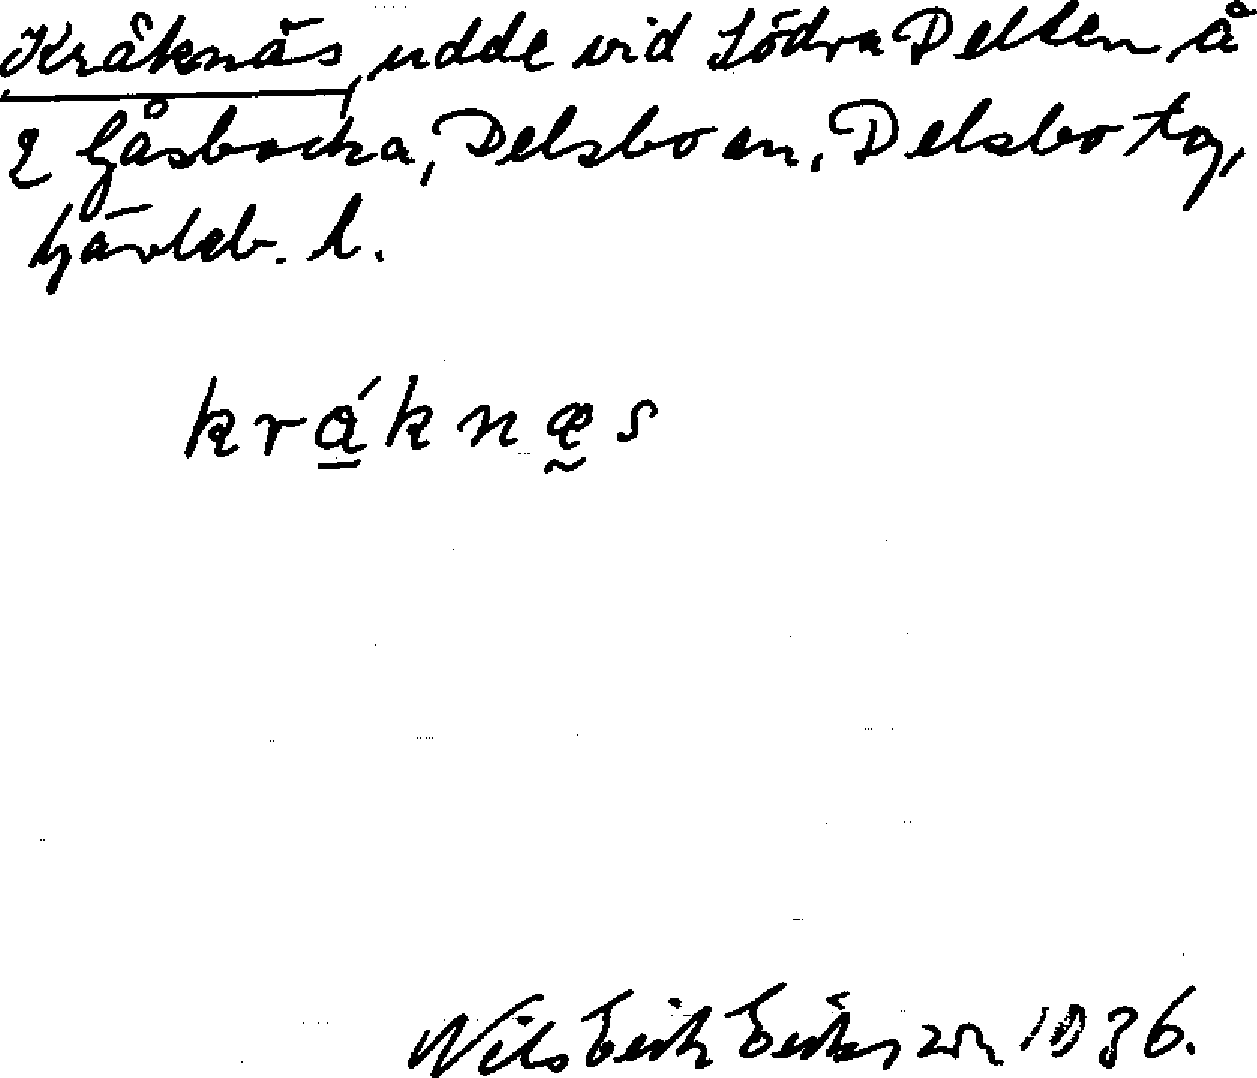 Kråknäs, udde vid Södra Dellen å
2 Gåsbacka, Delsbo sn, Delsbo tg,
Gävleb. l.
kråknæs
Nils Erik Eriksson 1936.